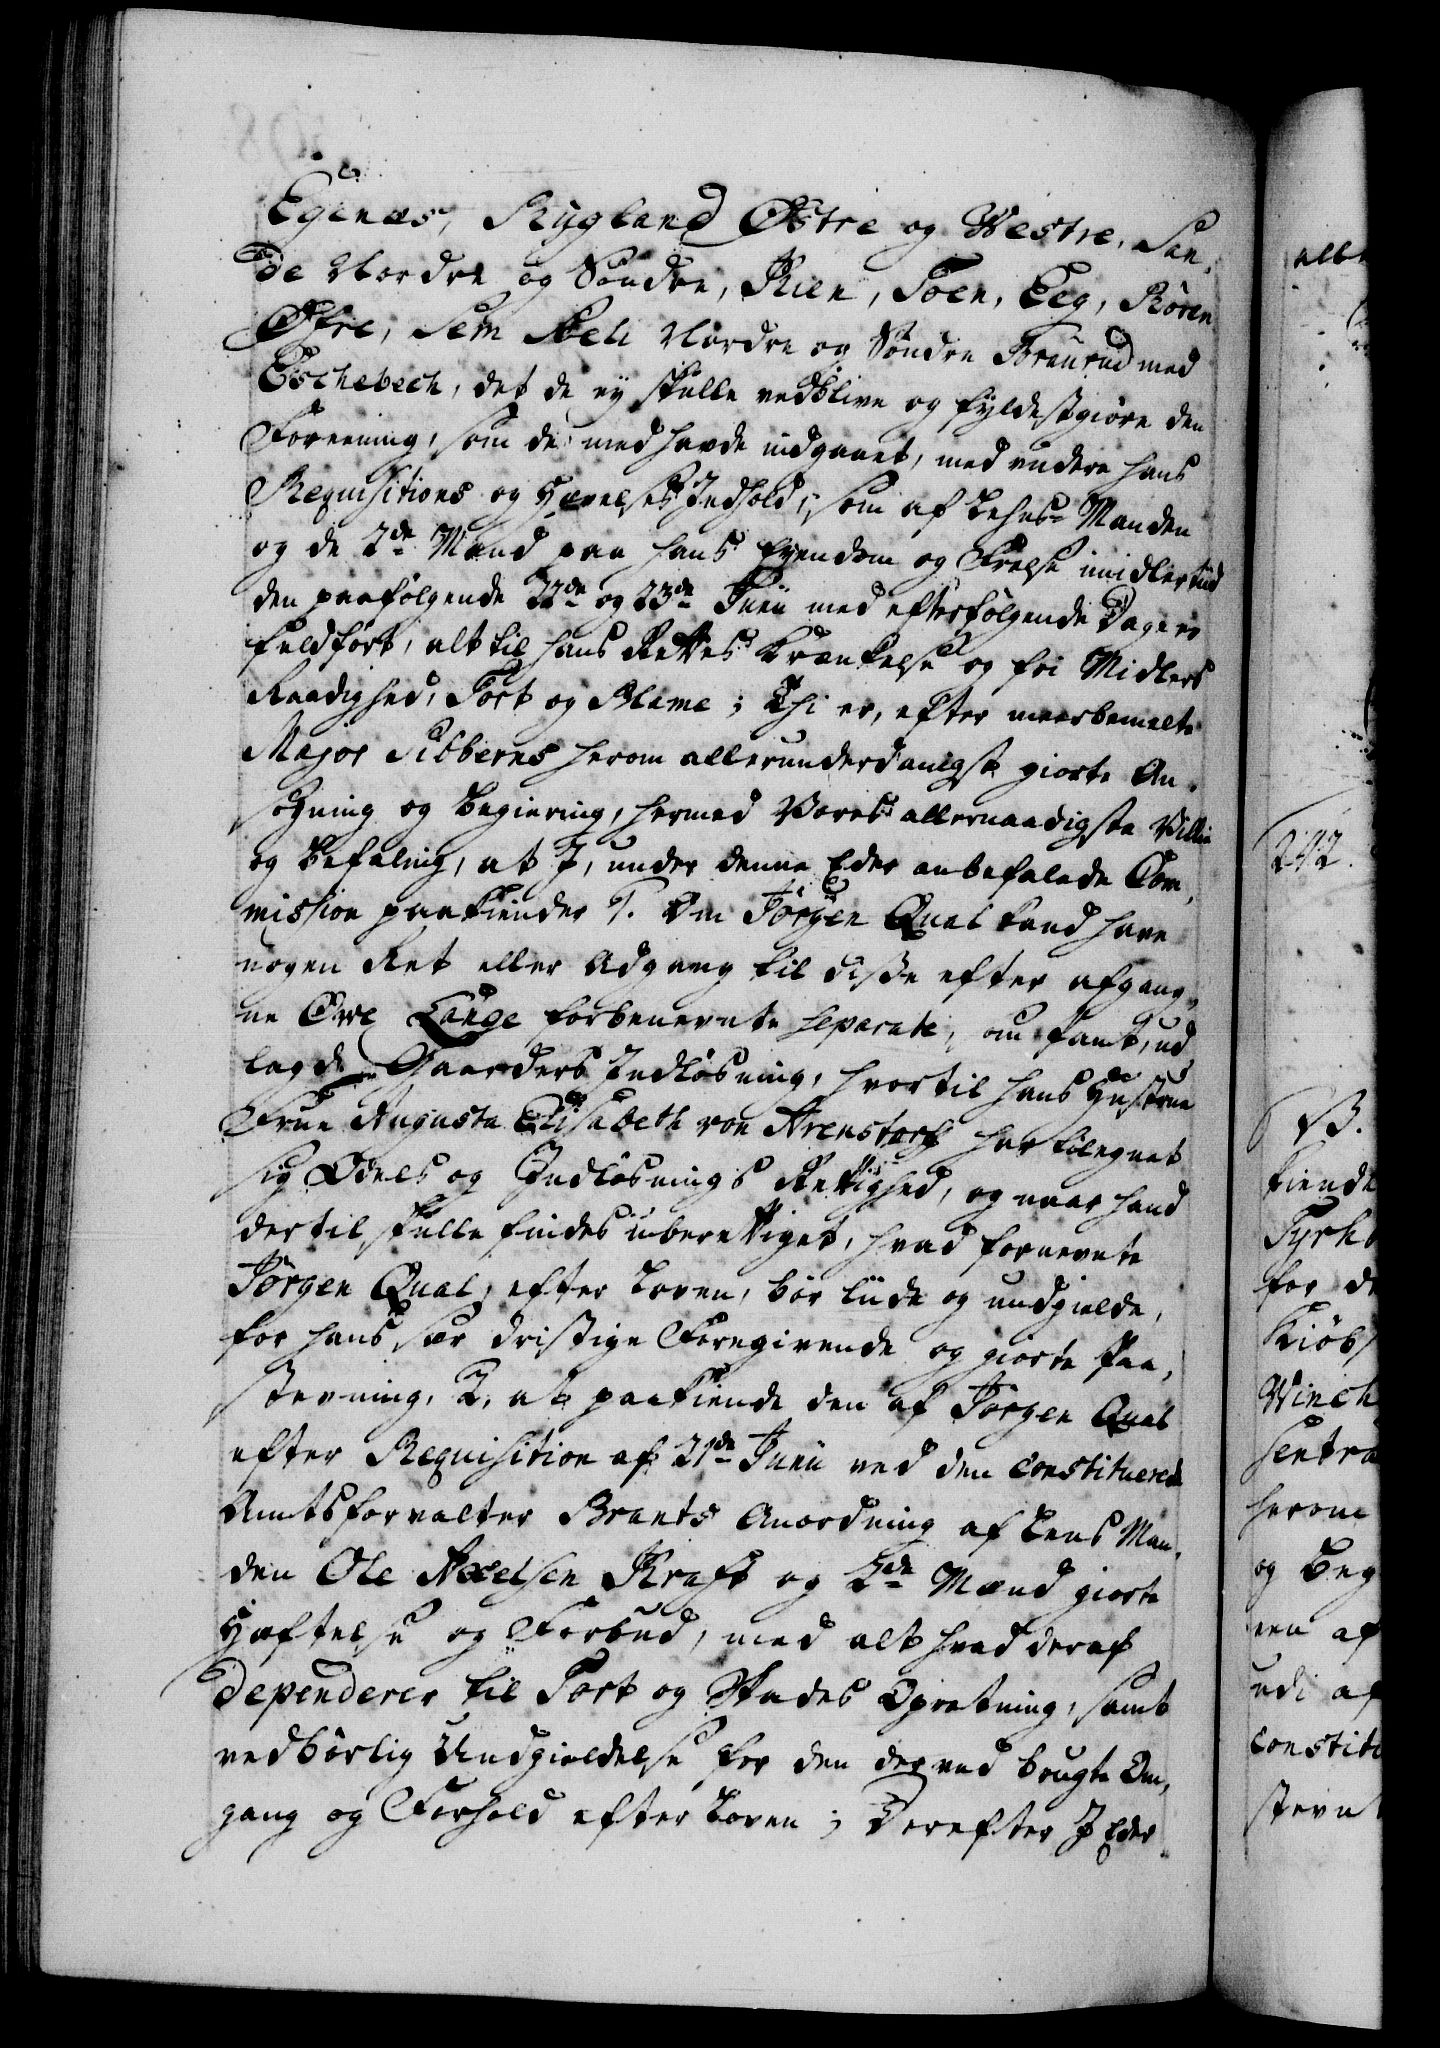 Egenæs, Rygland Østre og Westre, San,
de Nordre og Søndre, Rien, Foen, Eeg, Røren
Øfre, Sem Skeli Nordre og Søndre Torürud med
Eschebech, det de ey skulle vedblive og fyldestgiøre den
Foreening, som de med havde indgaaet, med videre hans
Requisitions og Hævelses Indhold; som af Lehns Manden
og de 2de Mænd paa hans Eyendom og Frelse imidlertiid
den paafølgende 22de og 23de Junii med efterfølgende Dage er
fuldført, alt til hans Rettes Krænkelse og foi Midlers
Raadighed, Tort og Blame; Thi er, efter meerbemelte
Major Sibberns herom allerunderdanigst giorte An,
søgning og Begiering, hermed Vores allernaadigste Villie
og Befaling, at I, under denne Eder anbefalede Com,
mission paakiender 1. Om Jörgen Qual kand have
nogen Ret eller Adgang til disse efter afgang,
ne Owe Lange forbenevnte separate, om Pant, ud
lagde Gaarders Indløsning, hvortil hans Hustrue
Frue Augusta Elisabeth von Arenstorff har tilegnet
sig Odels og Indløsnings Rettighed, og naar hand
dertil skulle findes uberettiget, hvad fornevnte
Jörgen Qual, efter Loven, bör liide og undgielde,
for hans saa dristige Foregivende og giorte Paa,
stevning, 2, at paakiende den af Jörgen Qual
efter Requisition af 21de Junii ved den Constituerede
Amtsforvalter Brants Anordning af Lens Man,
den Ole Axelsen Kraft og 2de Mænd giorte
Hæftelse og Forbud, med alt hvad deraf
dependerer til Tort og Skades Opretning, samt
vedbörlig Undgieldelse for den derved brugte Om,
gang og Forhold efter Loven; Derefter I Eder
242.